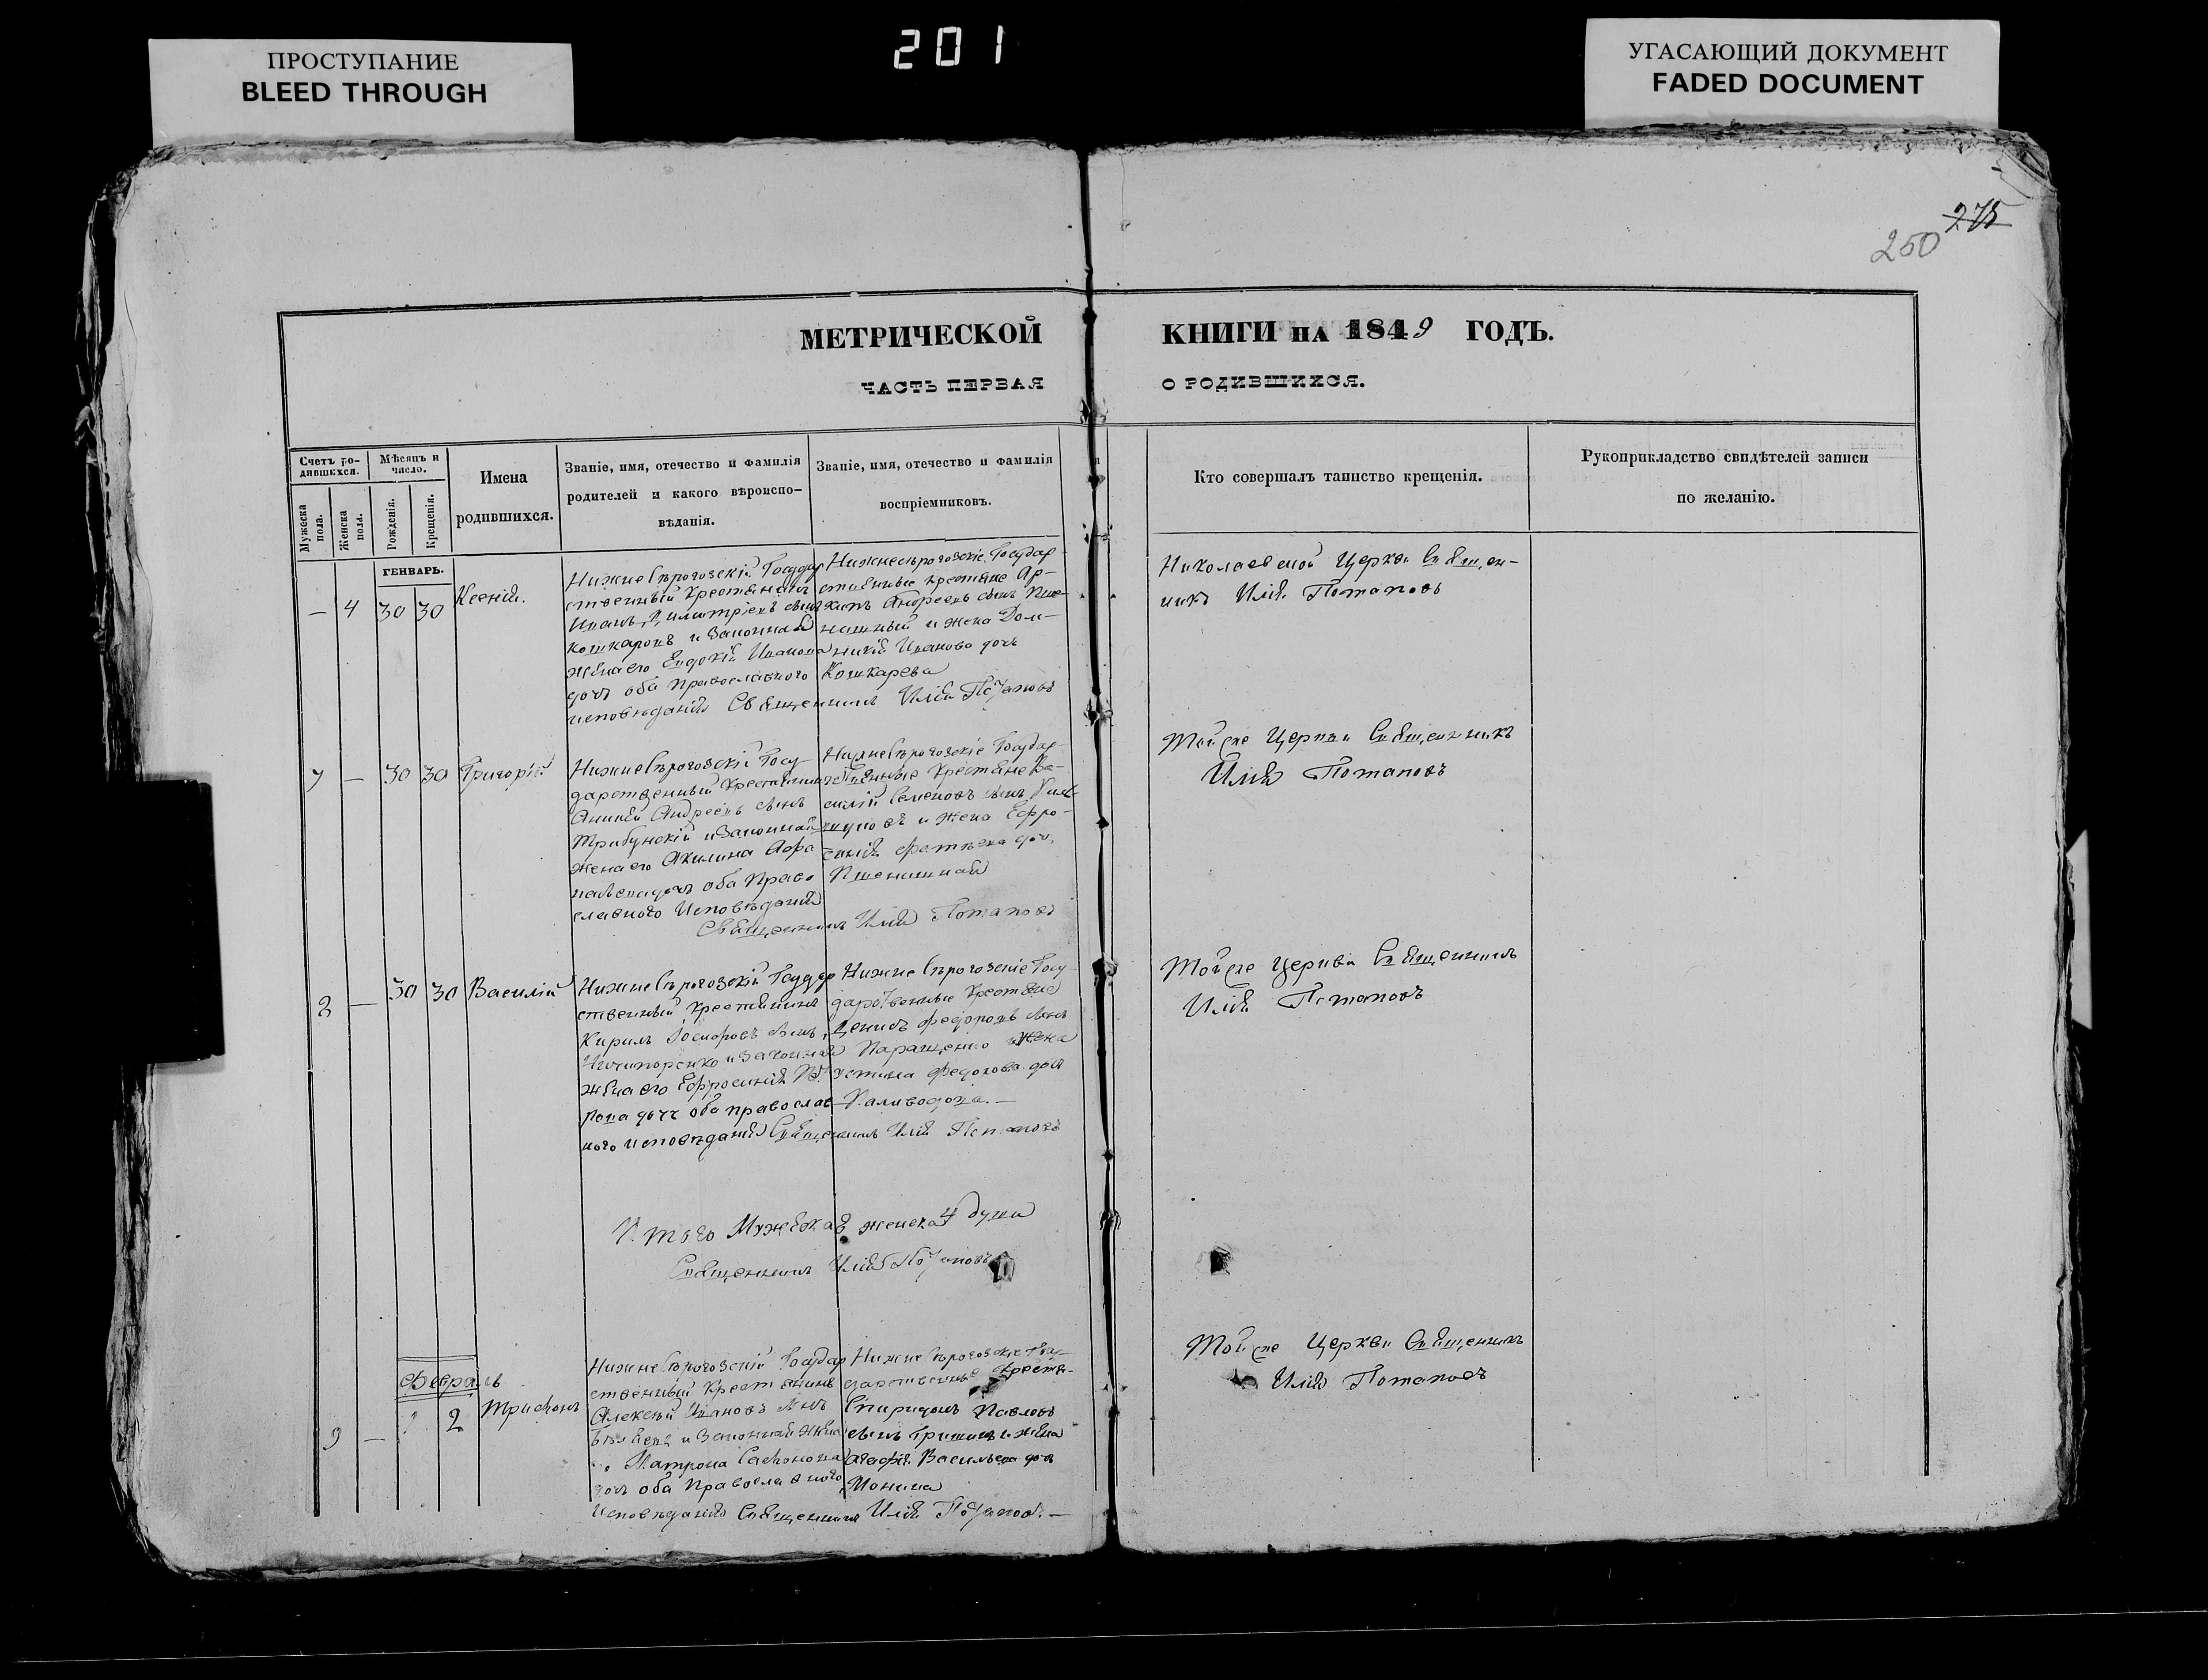 ПРОСТУПАНИЕ
BLEED THROUGH
201
УГАСАЮЩИЙ ДОКУМЕНТ
FADED DOCUMENT
275
250
МЕТРИЧЕСКОЙ КНИГИ НА 1849 ГОДЪ.
ЧАСТЬ ПЕРВАЯ О РОДИВШИХСЯ.
Счетъ ро-
дившихся.
Мужеска
пола.
Женска
пола.
Мѣсяцъ и
число.
Рожденія.
Крещенія.
Имена
родившихся.
Званіе, имя, отечество и фамилія
родителей и какого вѣроиспо-
вѣданія.
Званіе, имя, отечество и фамилія
воспріемниковъ.
Кто совершалъ таинство крещенія.
Рукоприкладство свидѣтелей записи
по желанію.
ГЕНВАРЬ.
— 4 30 30 Ксенія.
Нижнесѣрогозскій Государ
ственный Крестьянинъ
Иванъ Димитріевъ сынъ
Кошкаровъ и Законная
жена его Евдокія Иванова
дочь оба Православного
исповѣданія Священникъ Илія Потаповъ
Нижнесѣрогозскіе Государ-
ственные крестяне Ар-
хипъ Андреевъ сынъ Пше-
нишный и жена Дом-
никія Иванова дочь
Кошкарева
Николаевской Церкви Священ-
никъ Илія Потаповъ
7 — 30 30 Григорій
НижнеСѣрогозскій Госу-
дарственный Крестянинъ
Андреевъ сынъ
Трибунскій и Законная
жена его Акилина
дочь оба Право
славного Исповѣданія
Священникъ Илія Потаповъ
НижнеСѣрогозскіе Государ-
ственные Крестяне Ва-
силій Семеновъ сынъ
и жена Ефро-
синія дочь
Пшенишная
Тойже Церкви Священникъ
Илія Потаповъ
8 — 30 30 Василій
НижнеСѣрогозскій Государ
ственный Крестянинъ
Кирилъ Іосифовъ сынъ
Ничипоренко и Законная
жена его Ефросинія
дочь оба православ-
ного исповѣданія Священникъ Илія Потаповъ
НижнеСѣрогозскіе Госу-
дарственные Крестяне
Денисъ Федоровъ сынъ
Паращенко и Жена
Устина Федорова дочь
Паливодова.—
Тойже Церкви Священникъ
Илія Потаповъ
Итого Мужеска 8 женска 4 души
Священникъ Илія Потаповъ
Февраль
9 — 2 Трифонъ
НижнеСѣрогозскій Государ
ственный Крестянинъ
Алексѣй Ивановъ сынъ
и Законная жена
Матрона Сафонова
дочь оба Православного
Исповѣданія Священникъ Илія Потаповъ.—
НижнеСѣрогозскіе Госу-
дарственные Крестя-
Спиридонъ Павловъ
сынъ Гришинъ и жена
Агафія Васильева дочь
Монина
Тойже Церкви Священникъ
Илія Потаповъ